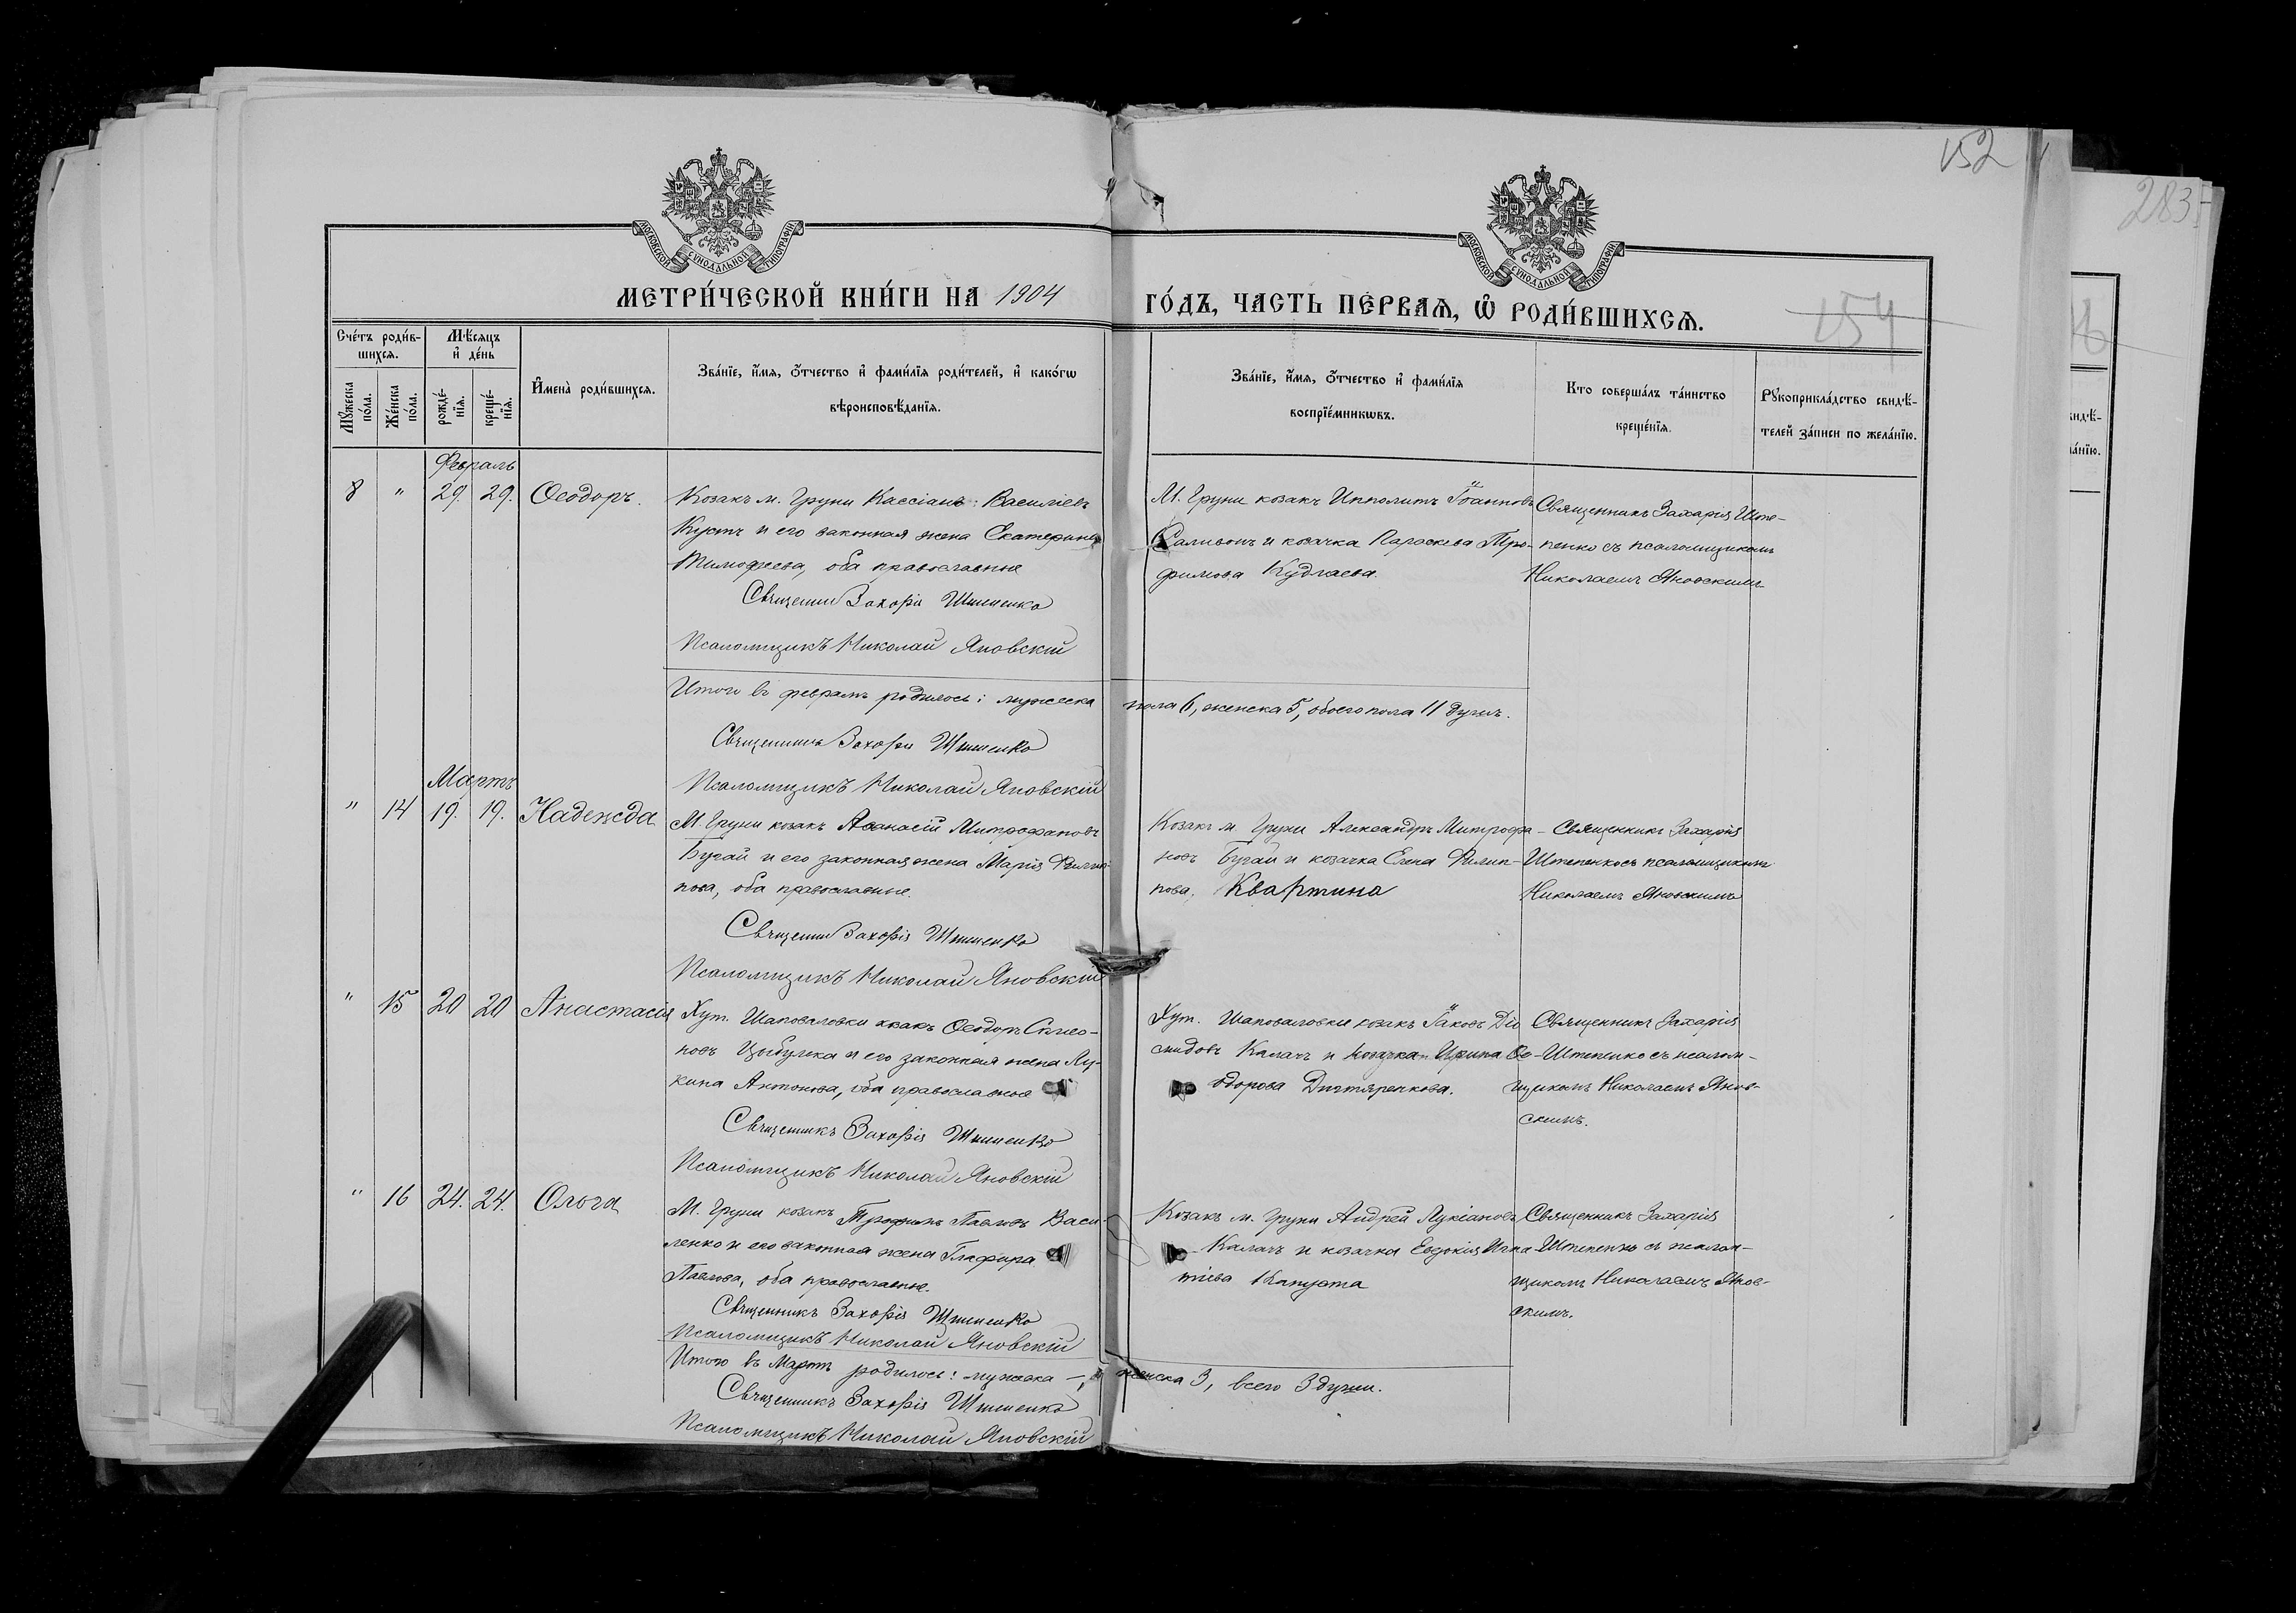 152
283
МОСКОВСКОЙ СѴНОДАЛЬНОЙ ТИПОГРАФІИ
МОСКОВСКОЙ СѴНОДАЛЬНОЙ ТИПОГРАФІИ
МЕТРИ́ЧЕСКОЙ КНИ́ГИ НА 1904
ГО́ДЪ, ЧАСТЬ ПЕ́РВАѦ, Ѽ РОДИ́ВШИХСѦ.
154
Сче́тъ роди́в-
шихсѧ.
Мѣ́сѧцъ
и҆ де́нь
Мꙋ́жеска
по́ла.
Же́нска
по́ла.
рожде́-
нїѧ.
креще́-
нїѧ.
И҆мена̀ роди́вшихсѧ.
Зва́нїе, и҆́мѧ, ѻ҆́тчество и҆ фами́лїѧ роди́телей, и҆ како́гѡ
вѣроисповѣ́данїѧ.
Зва́нїе, и҆́мѧ, ѻ҆́тчество и҆ фами́лїѧ
воспрїе́мникѡвъ.
Кто соверша́лъ та́инство
креще́нїѧ.
Рꙋкоприкла́дство свидѣ́-
телей за́писи по жела́нїю.
Февраль
8 " 29. 29. Ѳеодоръ.
Козакъ м. Груни Кассіанъ Василіевъ
Кустъ и его законная жена Екатерина
Тимофеева, оба православные
Захарія
Псаломщикъ Николай Яновскій
М. Груни козакъ Ипполитъ Іоанновъ
и козачка Параскева Тро-
фимова Кудлаева.
Священникъ Захарія
съ псаломщикомъ
Николаемъ Яновскимъ
Итого въ февралѣ родилось: мужеска пола 6, женска 5, обоего пола 11 душъ.
Священникъ Захарія
Псаломщикъ Николай Яновскій
Мартъ
" 14 19. 19. Надежда
М. Груни козакъ Аѳанасій Митрофановъ
Бугай и его законная жена Марія Филип-
пова, оба православные.
Захарія
Псаломщикъ Николай Яновскій
Козакъ м. Груни Александръ Митрофа-
новъ Бугай и козачка Елена Филип-
пова, Квартина
Священникъ Захарія
съ псаломщикомъ
Николаемъ Яновскимъ
" 15 20 20 Анастасія
Хут. Шаповаловки Ѳеодоръ Симео-
новъ Цыбулка и его законная жена Лу-
кина Антонова, оба православные
Священникъ Захарія
Псаломщикъ Николай Яновскій
Хут. Шаповаловки козакъ Іаковъ Діо
мидовъ Калачъ и козачка Ирина Ѳе-
одорова
Священникъ Захарія
съ псалом-
щикомъ Николаемъ Янов-
скимъ.
" 16 24. 24. Ольга
М. Груни козакъ Трофимъ Павловъ Васи-
ленко и его законная жена Глафира
Павлова, оба православные.
Священникъ Захарія
Псаломщикъ Николай Яновскій
Козакъ м. Груни Андрей Лукіановъ
Калачъ и козачка Евдокія Игна
тіева Капуста
Священникъ Захарія
съ псалом-
щикомъ Николаемъ Янов-
скимъ.
Итого въ Мартѣ родилось: мужска —, женска 3, всего 3 души.
Священникъ Захарія
Псаломщикъ Николай Яновскій